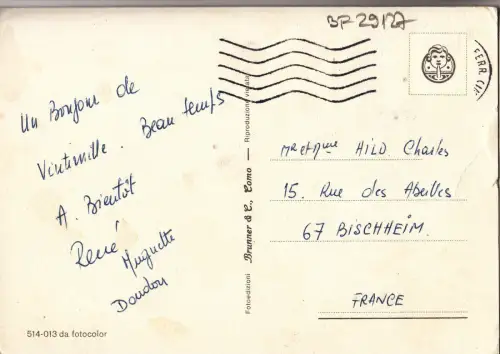 BF 29127
Un Bonjour de
Vintimille. Beau temps
A. Bientôt
René
Muguette
Doudou
514-013 da fotocolor
Fotoedizioni Brunner & C., Como — Riproduzione vietata
FERR. (IM
Mr et Mme HILD Charles
15. Rue des Abeilles
67 BISCHHEIM.
FRANCE